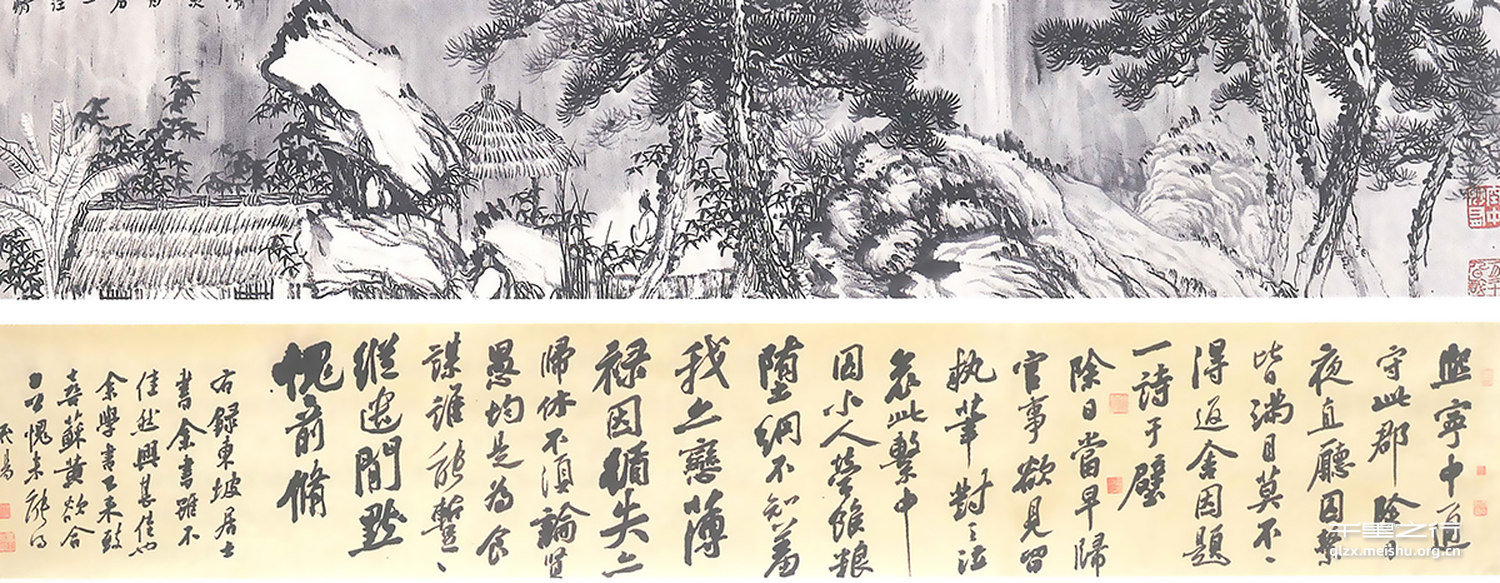 熙寧中通
守此郡除日
夜直廳囚繫
皆滿日莫不〻
得返舍因題
一詩于壁
除日當早歸
官事欲見留
執筆對之泣
哀此繫中
囚小人營餱粮
堕網不知羞
我亦戀薄
禄因循失亦
歸休不須論賢
愚均是為食
謀誰能暫〻
縱遣閔默
愧前脩
右録東坡居士
書余書雖不
佳然興甚佳也
余學書
喜蘇黃欲合
愧未能得
千里之行
qlzx.meishu.org.cn